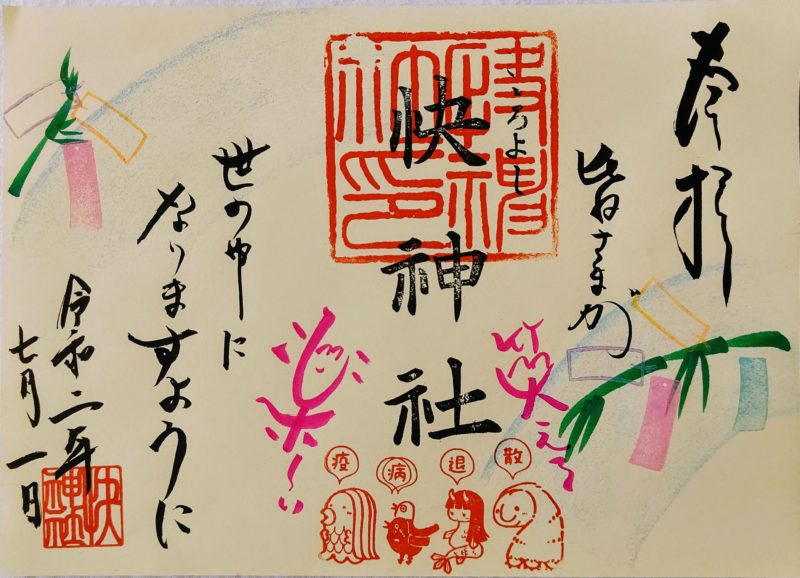 奉拝
皆さまが
笑える
こころよし
快神社
楽しい
世の中に
なりますように
令和二年
七月一日
疫
病
退
散